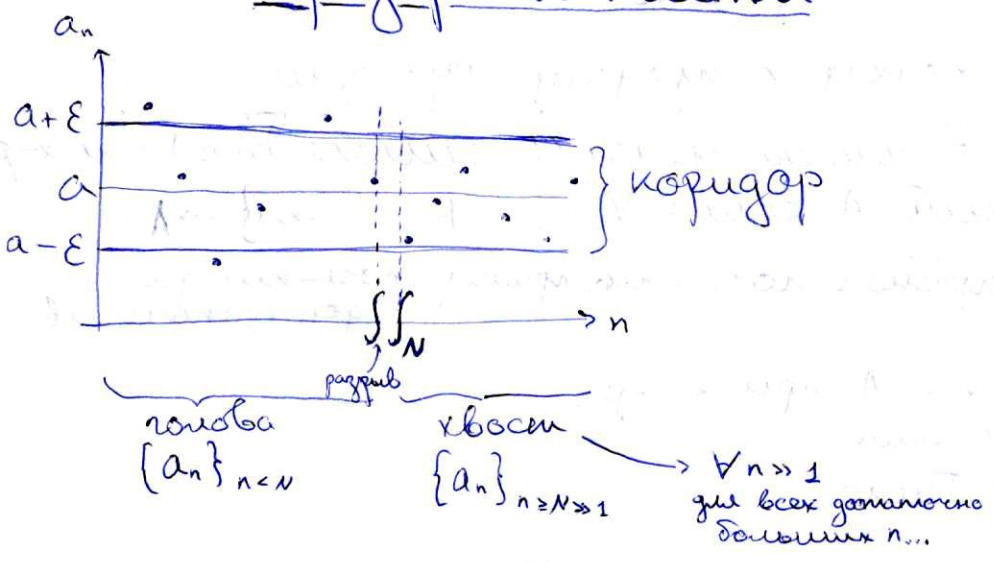 aₙ
a + ε
a
a − ε
} коридор
n
N
разрыв
голова
{aₙ} n < N
хвост
{aₙ} n ≥ N ≫ 1
∀ n ≫ 1
для всех достаточно
больших n...